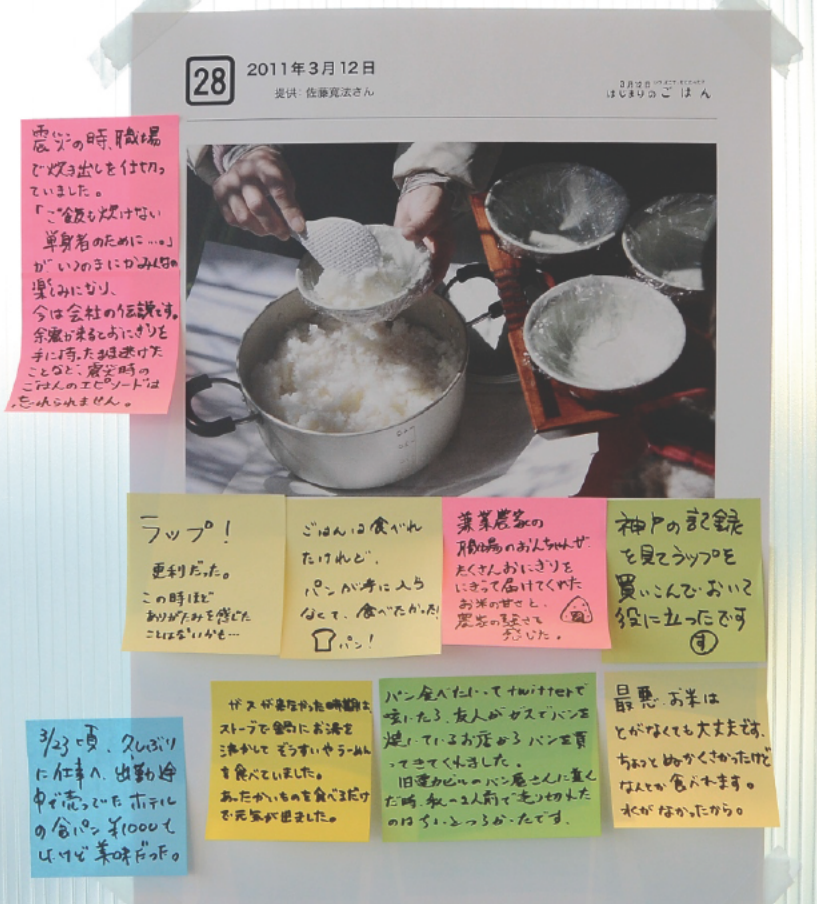 28
2011年3月12日
提供: 佐藤寛法さん
3月12日
はじまりのごはん
震災の時、職場
で炊き出しを仕切っ
ていました。
「ご飯も炊けない
単身者のために…。」
がいつのまにかみんなの
楽しみになり、
今は会社の伝説です。
余震が来るとおにぎりを
手に持ったまま逃げた
ことなど、震災時の
ごはんのエピソードは
忘れられません。
ラップ!
便利だった。
この時ほど
ありがたみを感じた
ことはないかも…
ごはんは食べれ
たけれど、
パンが手に入ら
なくて、食べたかった!
パン!
兼業農家の
職場のおんちゃんが
たくさんおにぎりを
にぎって届けてくれた
お米の甘さと、
農家の強さを
感じた。
神戸の記録
を見てラップを
買いこんでおいて
役に立ったです
す
3/23頃、久しぶり
に仕事へ、出勤途
中で売ってたホテル
の食パン ¥1000も
したけど美味だった。
ガスが来なかった時期は、
ストーブで鍋にお湯を
沸かしてぞうすいやラーメン
を食べていました。
あったかいものを食べるだけ
で元気が出ました。
パン食べたいってtwitterで
呟いたら、友人がガスでパンを
焼いているお店からパンを買
ってきてくれました。
旧蓮力ビルのパン屋さんに並ん
だ時、私の2人前で売り切れた
のはちょっとつらかったです。
最悪、お米は
とがなくても大丈夫です。
ちょっとぬかくさかったけど
なんとか食べれます。
水がなかったから。